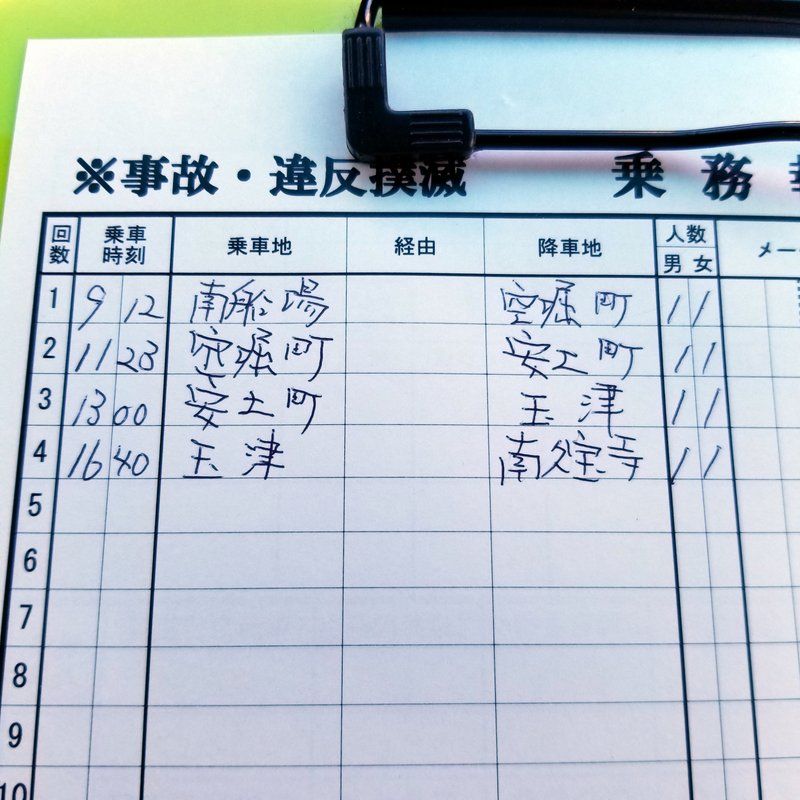 ※事故・違反撲滅 乗務
回数 乗車時刻 乗車地 経由 降車地 人数 男 女 メー
1 9 12 南船場 空堀町 1 1
2 11 23 空堀町 安土町 1 1
3 13 00 安土町 玉津 1 1
4 16 40 玉津 南久宝寺 1 1
5
6
7
8
9
10